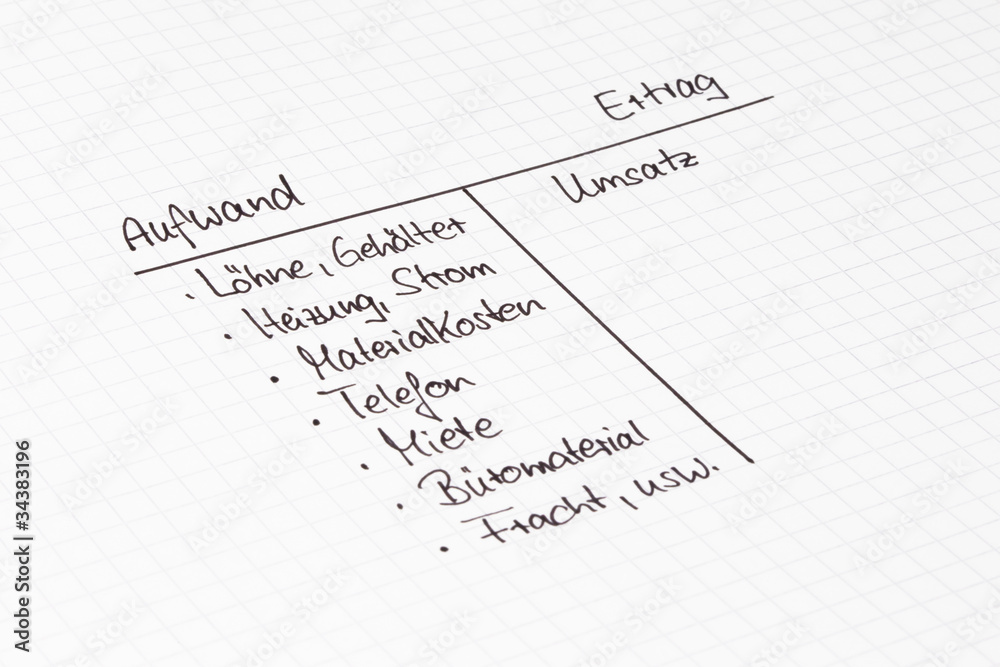 Aufwand Ertrag
· Löhne, Gehälter Umsatz
· Heizung, Strom
· Materialkosten
· Telefon
· Miete
· Büromaterial
· Fracht, usw.
Adobe Stock | #34383196